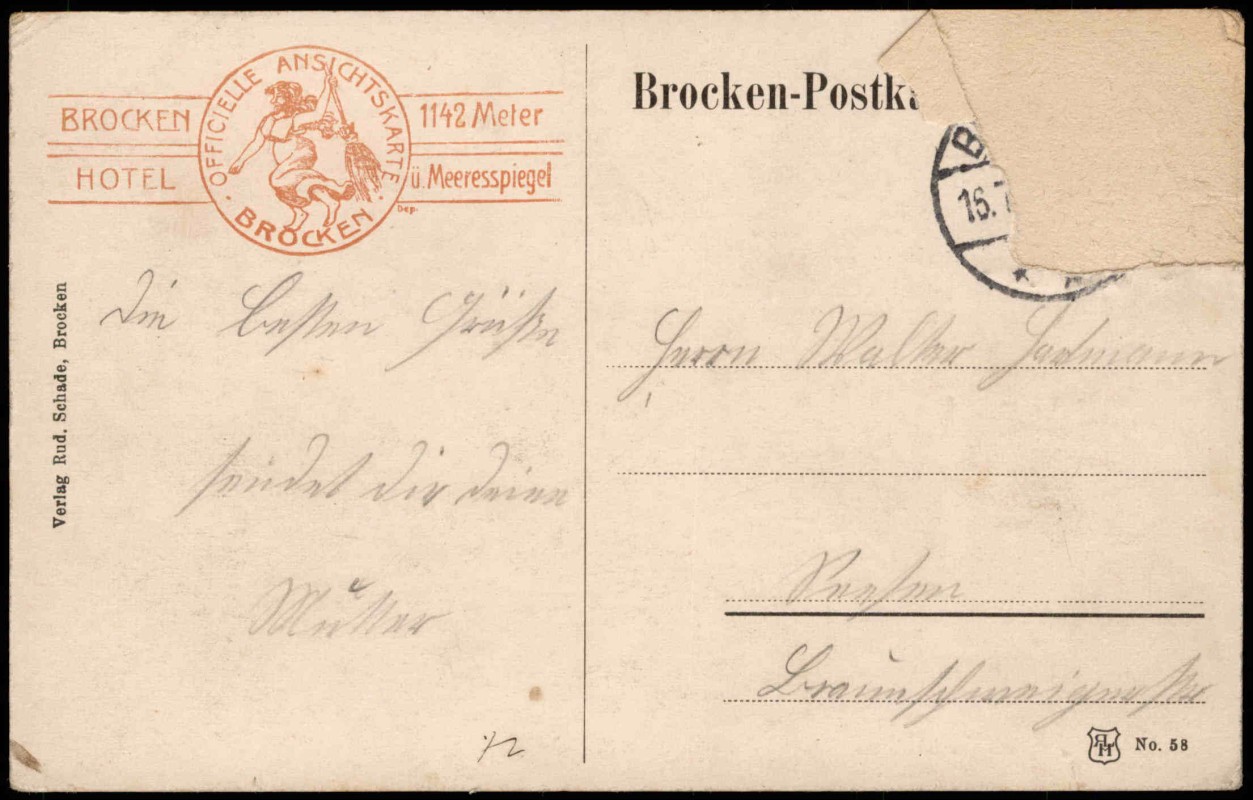 BROCKEN
HOTEL
OFFICIELLE ANSICHTSKARTE
BROCKEN
1142 Meter
ü. Meeresspiegel
Dep.
Verlag Rud. Schade, Brocken
Die besten Grüße
sendet dir deine
Mutter
Brocken-Postka
B
16.7
Herrn Walter Hartmann
Seesen
Braunschweigerstr
No. 58